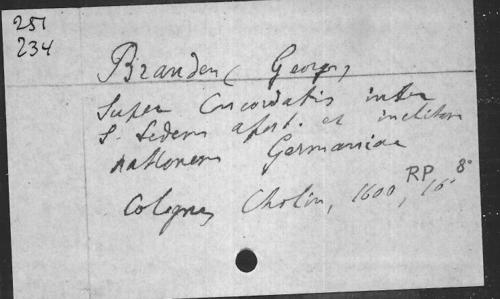 251
234
Branden( Georg,
Super Concordatis inter
S. Sedem apost. et inclitam
nationem Germaniae
Cologne, Cholin, 1600, RP 16° 8°